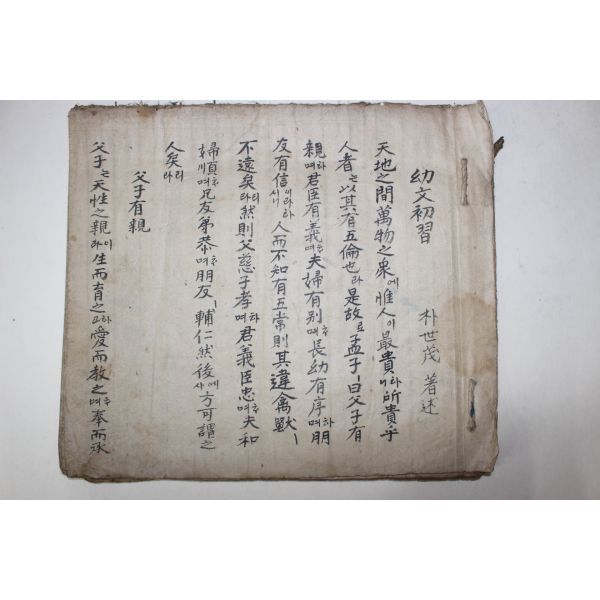 幼文初習 朴世茂 著述
天地之間萬物之衆에惟人이最貴니라所貴乎
人者는以其有五倫也라是故로孟子曰父子有
親하며君臣有義하며夫婦有別하며長幼有序하며朋
友有信이라하시니人而不知有五常則其違禽獸ㅣ
不遠矣리라然則父慈子孝하며君義臣忠하며夫和
婦順하며兄友弟恭하며朋友ㅣ輔仁然後에사方可謂之
人矣리라
父子有親
父子는天性之親이라生而育之하고愛而敎之하며奉而承